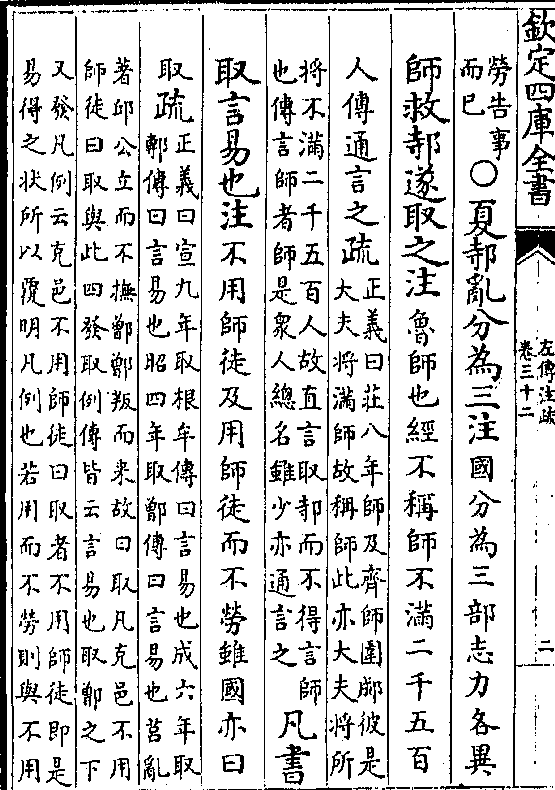 欽定四庫全書
左傳注疏
卷三十二
二
勞告事
而已
○夏邿亂分為三注國分為三部志力各異
師救邿遂取之注魯師也經不稱師不滿二千五百
人傳通言之疏
正義曰莊八年師及齊師圍郕彼是
大夫將滿師故稱師此亦大夫將所
將不滿二千五百人故直言取邿而不得言師
也傳言師者師是衆人總名雖少亦通言之
凡書
取言易也注不用師徒及用師徒而不勞雖國亦曰
取疏
正義曰宣九年取根牟傳曰言易也成六年取
鄟傳曰言易也昭四年取鄫傳曰言易也莒亂
著邱公立而不撫鄫鄫叛而来故曰取凡克邑不用
師徒曰取與此四發取例傳皆云言易也取鄫之下
又發凡例云克邑不用師徒曰取者不用師徒即是
易得之状所以覆明凡例也若用而不勞則與不用